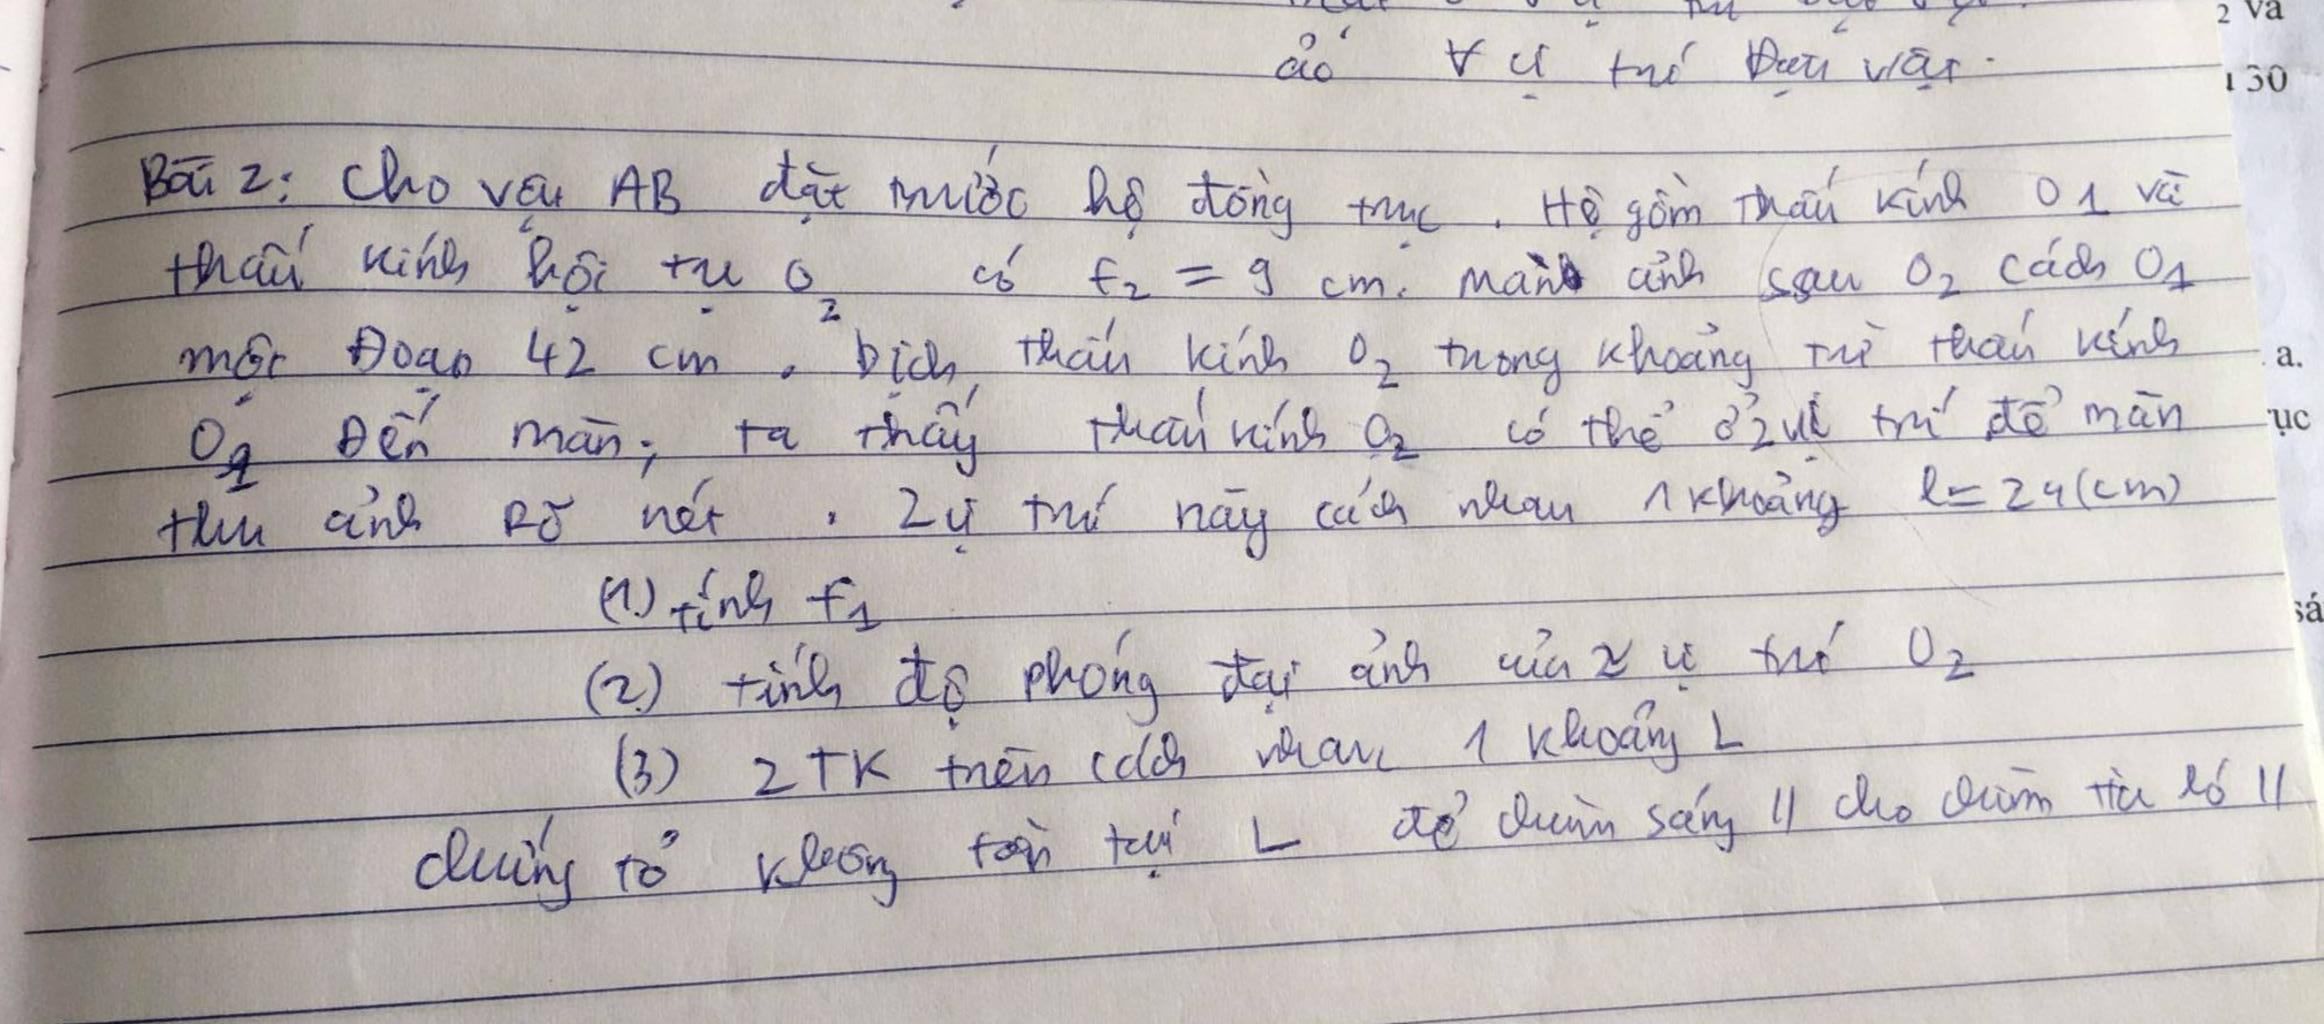 ảo ∀ vị trí Đặt vật.
2 và
130
Bài 2: Cho vật AB đặt trước hệ đồng trục. Hệ gồm thấu kính O1 và
thấu kính hội tụ O2 có f2 = 9 cm. màn ảnh sau O2 cách O1
một Đoạn 42 cm. Dịch thấu kính O2 trong khoảng từ thấu kính
a.
O1 Đến màn; ta thấy thấu kính O2 có thể ở 2 vị trí để màn
ục
thu ảnh Rõ nét. 2 vị trí này cách nhau 1 khoảng l = 24 (cm)
(1) tính f1
sá
(2) tính độ phóng đại ảnh của 2 vị trí O2
(3) 2TK trên cách nhau 1 khoảng L
chứng tỏ không tồn tại L để chùm sáng // cho chùm tia ló //